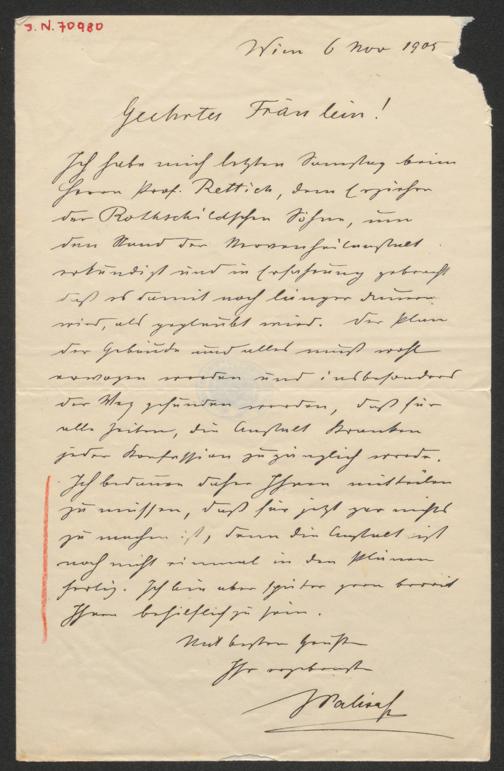 J.N. 70980
Wien 6 Nov 1905
Geehrtes Fräulein!
Ich habe mich letzten Samstag beim
Herrn Prof. Rettich, dem Erzieher
der Rothschildschen Söhne, um
den Stand der Nervenheilanstalt
erkundigt und in Erfahrung gebracht
daß es damit noch länger dauern
wird, als geglaubt wird. Der Plan
der Gebäude und alles muß wohl
erwogen werden und insbesonders
der Weg gefunden werden, daß für
alle Zeiten, die Anstalt Kranken
jeder Konfession zugänglich werde.
Ich bedaure daher Ihnen mitteilen
zu müssen, daß für jetzt gar nichts
zu machen ist, denn die Anstalt ist
noch nicht einmal in den Plänen
fertig. Ich bin aber später gern bereit
Ihnen behilflich zu sein.
Mit besten Grüßen
Ihr ergebenster
J Palisa